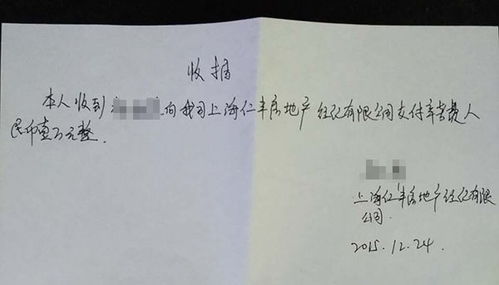 收据
本人收到 向我司上海仁丰房地产经纪有限公司支付辛苦费人
民币壹万元整.
上海仁丰房地产经纪有限
公司.
2015.12.24.